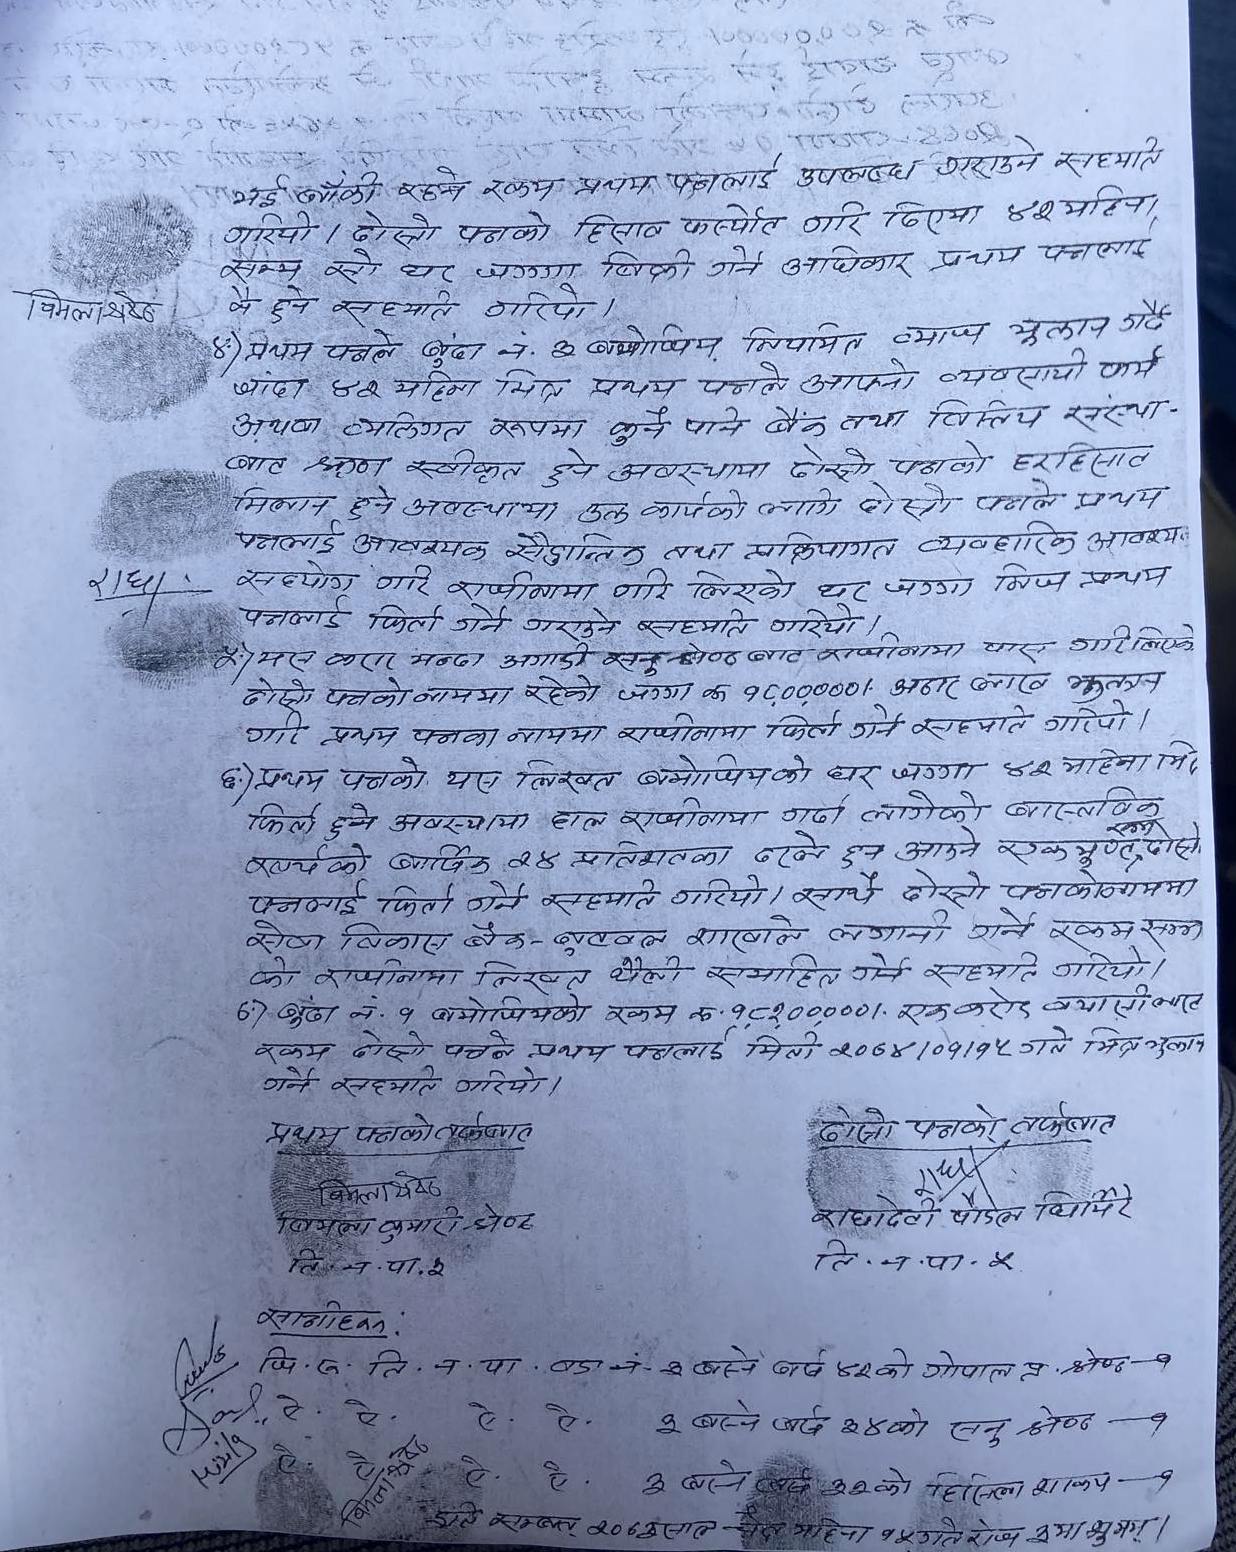 भई बाँकी रहने रकम प्रथम पक्षलाई उपलब्ध गराउने सहमति
गरियो । दोस्रो पक्षको हिसाव फर्स्योट गरि दिएमा ४२ महिना
सम्म सो घर जग्गा बिक्री गर्ने अधिकार प्रथम पक्षलाई
नै हुने सहमति गरियो ।
विमला श्रेष्ठ
४) प्रथम पक्षले बुंदा नं. ३ बमोजिम नियमित व्याज भुक्तान गर्दै
जांदा ४२ महिना भित्र प्रथम पक्षले आफ्नो व्यवसायी फर्म
अथवा व्यक्तिगत रूपमा कुनै पनि बैंक तथा वित्तिय संस्था-
बाट ऋण स्वीकृत हुने अवस्थामा दोस्रो पक्षको हरहिसाव
मिलान हुने अवस्थामा उक्त कार्यको लागि दोस्रो पक्षले प्रथम
पक्षलाई आवश्यक सैद्धान्तिक तथा प्रक्रियागत व्यवहारिक आवश्यक
राधा
सहयोग गरि राजीनामा गरि लिएको घर जग्गा निज प्रथम
पक्षलाई फिर्ता गर्ने गराउने सहमति गरियो ।
५) यस करार भन्दा अगाडी सनु श्रेष्ठबाट राजीनामा पास गरी लिएको
दोस्रो पक्षको नाममा रहेको जग्गा रू १८,०००००।- अठार लाख भुक्तान
गरि प्रथम पक्षका नाममा राजीनामा फिर्ता गर्ने सहमति गरियो ।
६) प्रथम पक्षको यस लिखत बमोजिमको घर जग्गा ४२ महिना भित्र
फिर्ता हुने अवस्थामा हाल राजीनामा गर्दा लागेको वास्तविक
खर्चको वार्षिक २४ प्रतिशतका दरले हुन आउने एकमुष्ट रकम दोस्रो
पक्षलाई फिर्ता गर्ने सहमति गरियो । साथै दोस्रो पक्षको नाममा
सेवा विकास बैंक-बुटवल शाखाले लगानी गर्ने रकम सम्म
को राजीनामा लिखत थैली समाहित गर्ने सहमति गरियो ।
७) बुंदा नं. १ बमोजिमको रकम रू. १,८२,०००००।- एक करोड बयासी लाख
रकम दोस्रो पक्षले प्रथम पक्षलाई मिती २०६४/०१/१५ गते भित्र भुक्तान
गर्ने सहमति गरियो ।
प्रथम पक्षको तर्फबाट
दोस्रो पक्षको तर्फबाट
विमला श्रेष्ठ
राधा
विमला कुमारी श्रेष्ठ
राधादेवी पौडेल घिमिरे
ति. न. पा. ३
ति. न. पा. ५
साक्षीहरू:
जि. रू. ति. न. पा. वडा नं. ३ बस्ने बर्ष ४२ को गोपाल प्र. श्रेष्ठ—१
ऐ. ऐ. ऐ. ऐ. ३ बस्ने बर्ष ३४ को सनु श्रेष्ठ—१
ऐ. ऐ. ऐ. ऐ. ३ बस्ने बर्ष ३२ को शाक्य—१
विमला श्रेष्ठ
इति सम्बत २०६३ साल चैत महिना १५ गते रोज ३ मा शुभम् ।